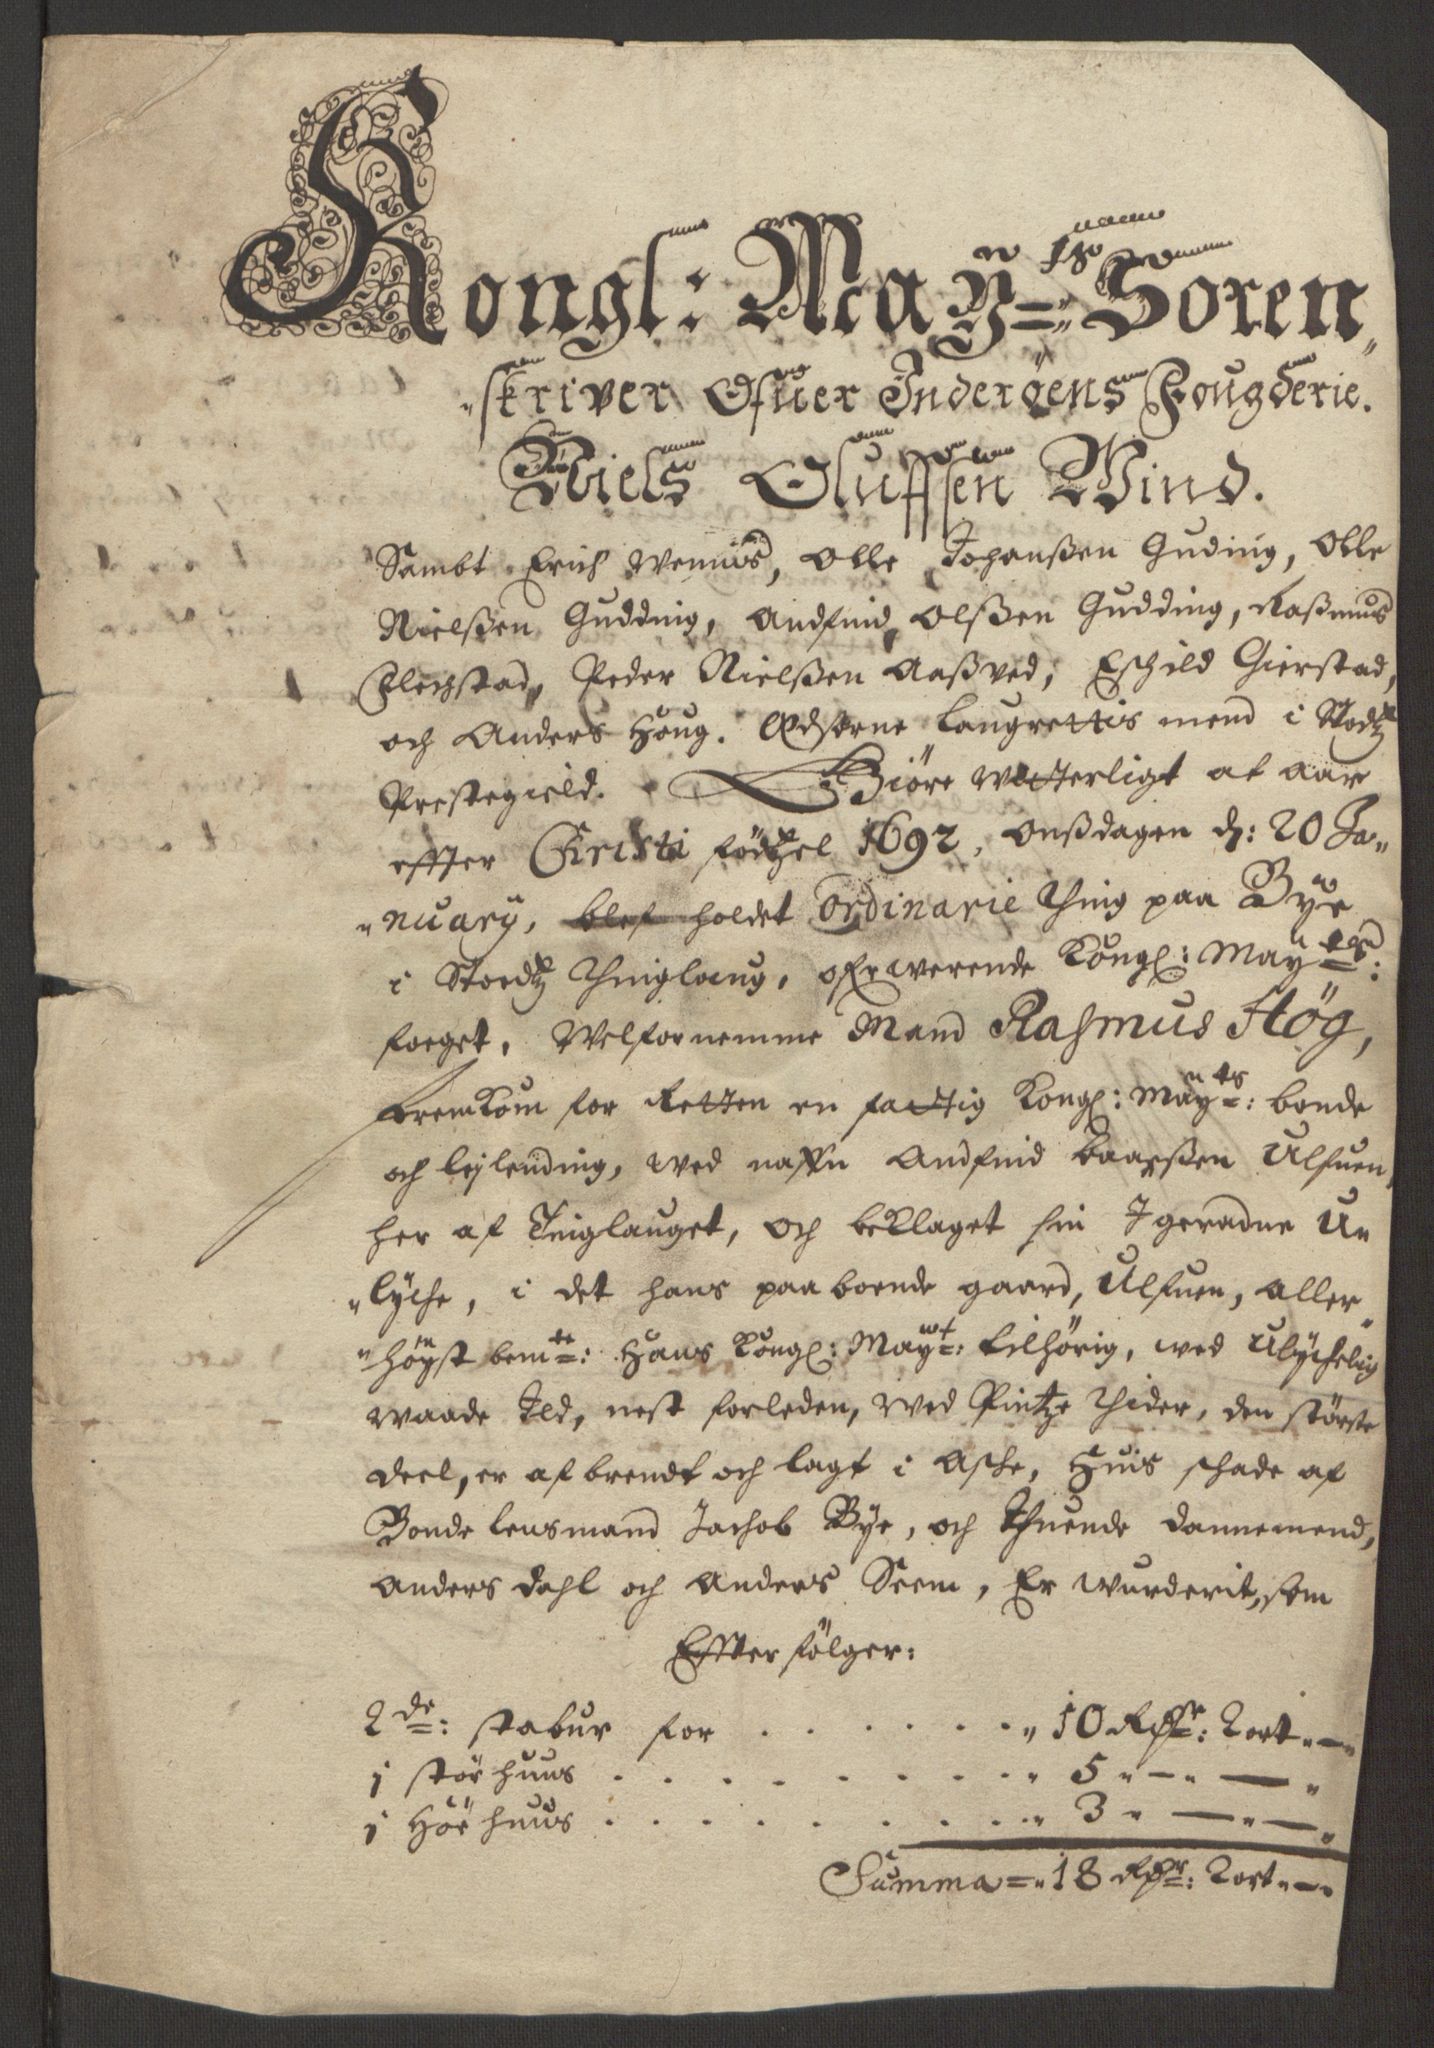 Kongl: May=ts Soren„
„skriver Ofuer Inderøens Fougderie.
Niels Oluffsen Wind.
Sambt Erich Wennes, Olle Johanßen Guding, Olle
Nielßen Gudding, Andfind Olßen Gudding, Raßmus
Flechstad, Peder Nielßen Aaßved, Eschild Gierstad,
och Anders Houg. Edsorne Laugrettis mend i Stodtz
Prestegield. Giøre witterligt at aar
effter Christi fødtzel 1692, Onßdagen d: 20 Ja„
„nuary, blef holdet Ordinarie Thing paa Bye
i Stoedtz Thinglaug, ofverwerende Kongl: May=ts:
foeget, Welfornemme Mand Rasmus Hög,
fremkom for Retten en fattig Kongl: May=ts: bonde
och leylending, wed naffn Andfind Baarßen Ulfuen,
her af Tinglauget, och beklaget sin Igeradne U„
„lyche, i det hans paaboende gaard, Ulfuen, Aller„
„høyst bem=te: Hans Kongl: May=t: tilhørig, wed Ulychelig
waade Ild, nest forleden, wed Pintze Thider, den støeste
deel, er af brendt och lagt i Aske, Huis schade af
Bonde lensmand Jachob Bye, och Thuende dannemend,
Anders Dahl och Anders Seem, Er wurderit, som
Effter følger:
2de: stabur for . . . . . . „ 10 Rdr: 2 ort „—„
1 stør huus . . . . . . . . „ 5 „ — „ — „
1 Høe huus . . . . . . . . „ 3 „ — „ — „
Summa = „ 18 Rdr: 2 ort „—„